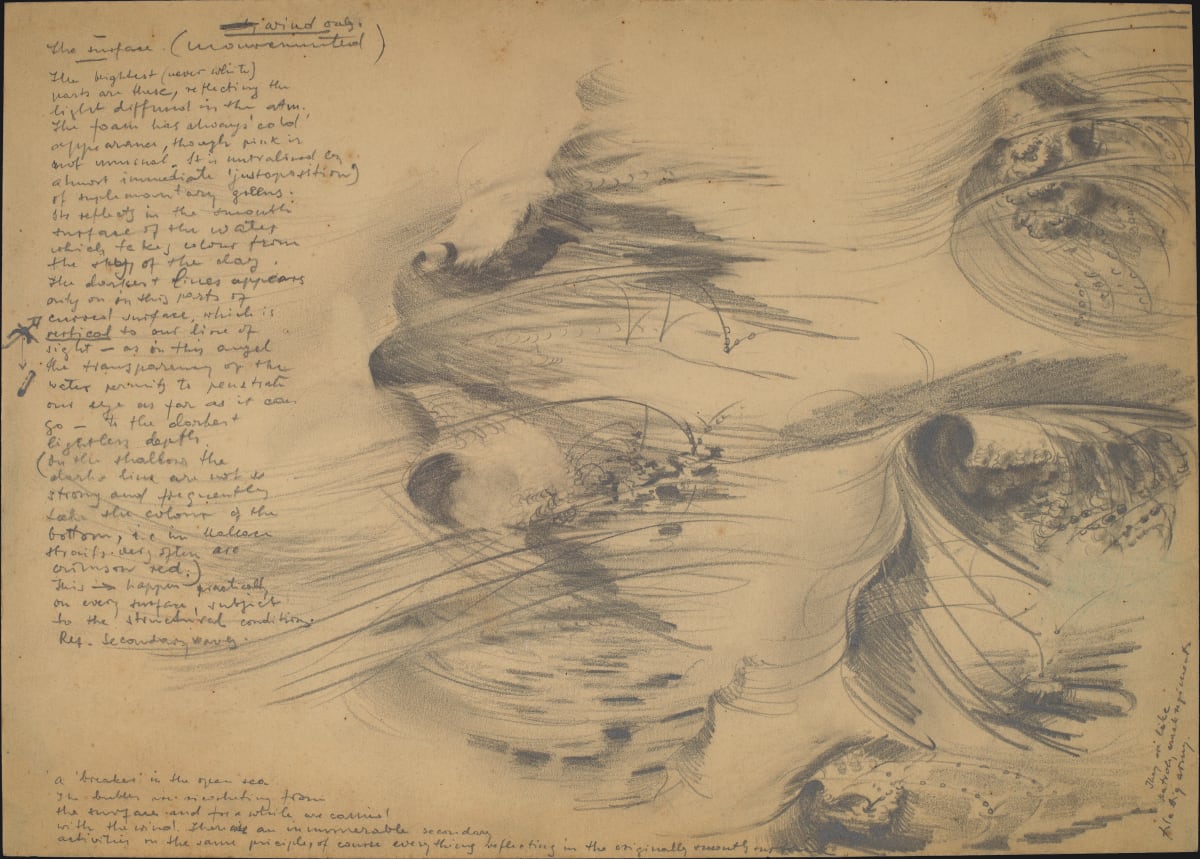 by wind only.
The surface. (
The brightest (never white)
parts are these, reflecting the
light diffused in the atm.
The foam has always 'cold'
appearance, though pink is
not unusual. It is by
almost immediate (justoposition)
of suplementary greens.
Its reflects in the smooth
surface of the water
which takes colour from
the sky of the day.
The darkest lines appears
only on in this parts of
curved surface, which is
vertical to our line of
sight – as on this angel
the transparency of the
water permits to penetrate
our eye as far as it can
go – to the darkest
lightless depths
(In the shallows the
dark line are not so
strong and frequently
take the colour of the
bottom, i.e in Wallace
straits very often are
crimson red.)
This → happen practically
on every surface, subject
to the structural conditions.
Ref. Secondary waves.
a 'breaker' in the open sea
The bubbles are from
the surface and for a while are carried
with the wind. There are an innumerable secondary
activities on the same principles, of course everything reflecting in the originally smooth
They are like
small regiments
of a big army.